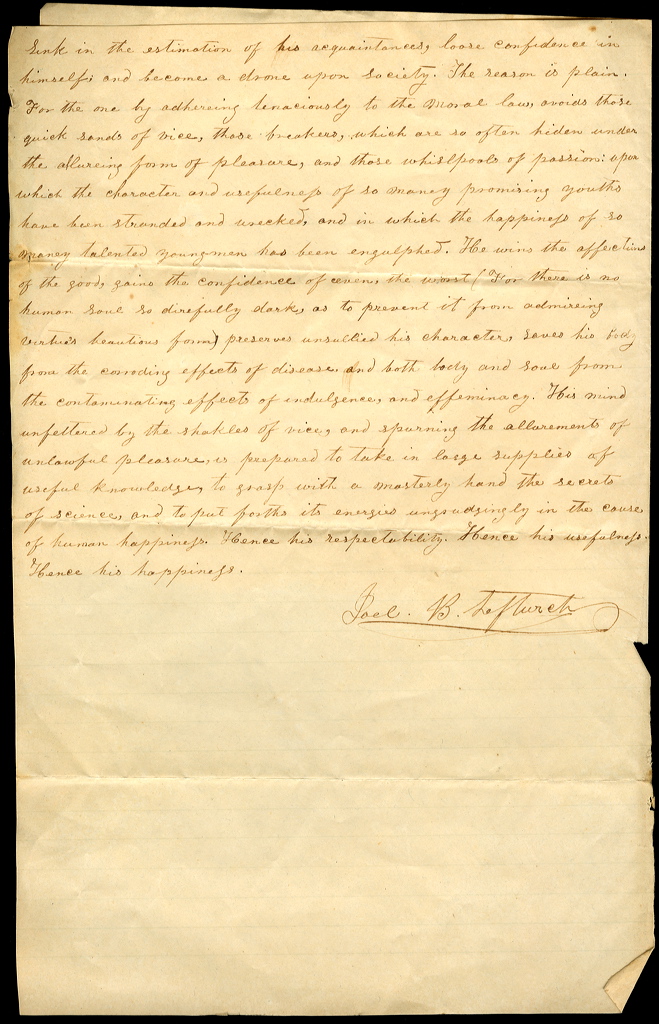 Sink in the estimation of his acquaintances, loose confidence in
himself; and become a drone upon Society. The reason is plain.
For the one by adhereing tenaciously to the moral law, avoids those
quick sands of vice, those breakers, which are so often hiden under
the allureing form of pleasure, and those whirlpools of passion: upon
which the character and usefulness of so maney promising youths
have been stranded and wrecked, and in which the happiness of so
maney talented youngmen has been engulphed. He wins the affections
of the good, gains the confidence of even the worst (For there is no
human soul so direfully dark, as to prevent it from admireing
virtues beautious form) preserves unsullied his character, saves his body
from the corroding effects of disease and both body and soul from
the contaminating effects of indulgence, and effeminacy. His mind
unfettered by the shakles of vice, and spurning the allurements of
unlawful pleasure, is prepared to take in large supplies of
useful knowledge, to grasp with a masterly hand the secrets
of science, and to put forth its energies ungrudgingly in the cause
of human happiness. Hence his respectability. Hence his usefulness.
Hence his happiness.
Joel. B. Leftwich